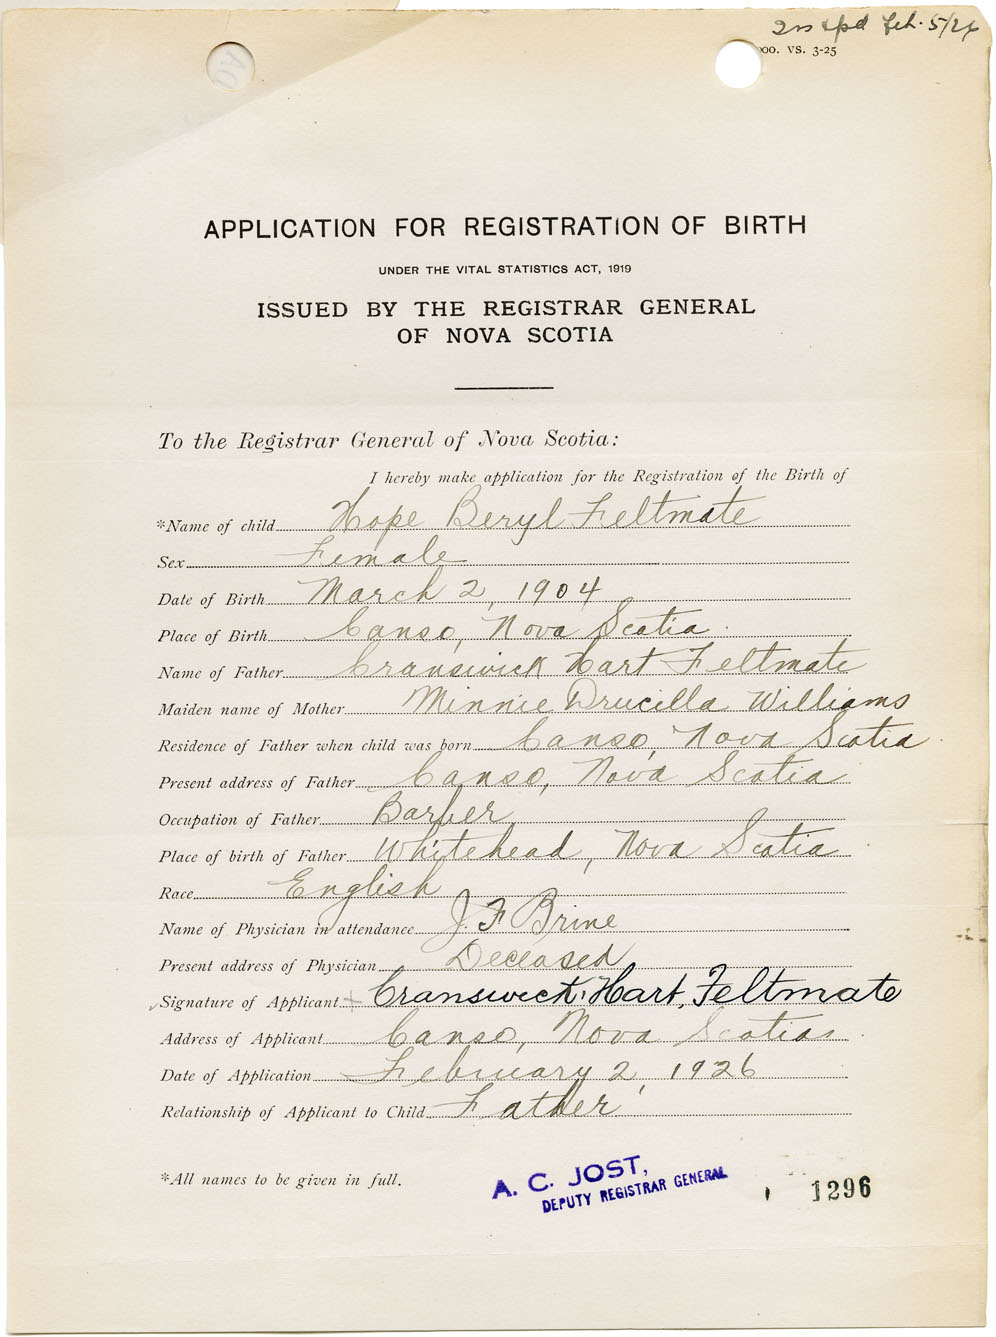 Feb. 5/26
000. VS. 3-25
APPLICATION FOR REGISTRATION OF BIRTH
UNDER THE VITAL STATISTICS ACT, 1919
ISSUED BY THE REGISTRAR GENERAL
OF NOVA SCOTIA
To the Registrar General of Nova Scotia:
I hereby make application for the Registration of the Birth of
*Name of child Hope Beryl Feltmate
Sex Female
Date of Birth March 2, 1904
Place of Birth Canso, Nova Scotia.
Name of Father Cranswick Hart Feltmate
Maiden name of Mother Minnie Drucilla Williams
Residence of Father when child was born Canso, Nova Scotia.
Present address of Father Canso, Nova Scotia
Occupation of Father Barber
Place of birth of Father Whitehead, Nova Scotia
Race English
Name of Physician in attendance J. F Brine
Present address of Physician Deceased
Signature of Applicant Cranswick Hart, Feltmate
Address of Applicant Canso, Nova Scotia
Date of Application February 2, 1926
Relationship of Applicant to Child Father
*All names to be given in full.
A. C. JOST,
DEPUTY REGISTRAR GENERAL
1296